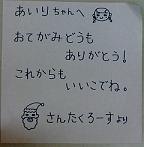 あいりちゃんへ
おてがみどうも
ありがとう!
これからも
いいこでね。
さんたくろーすより